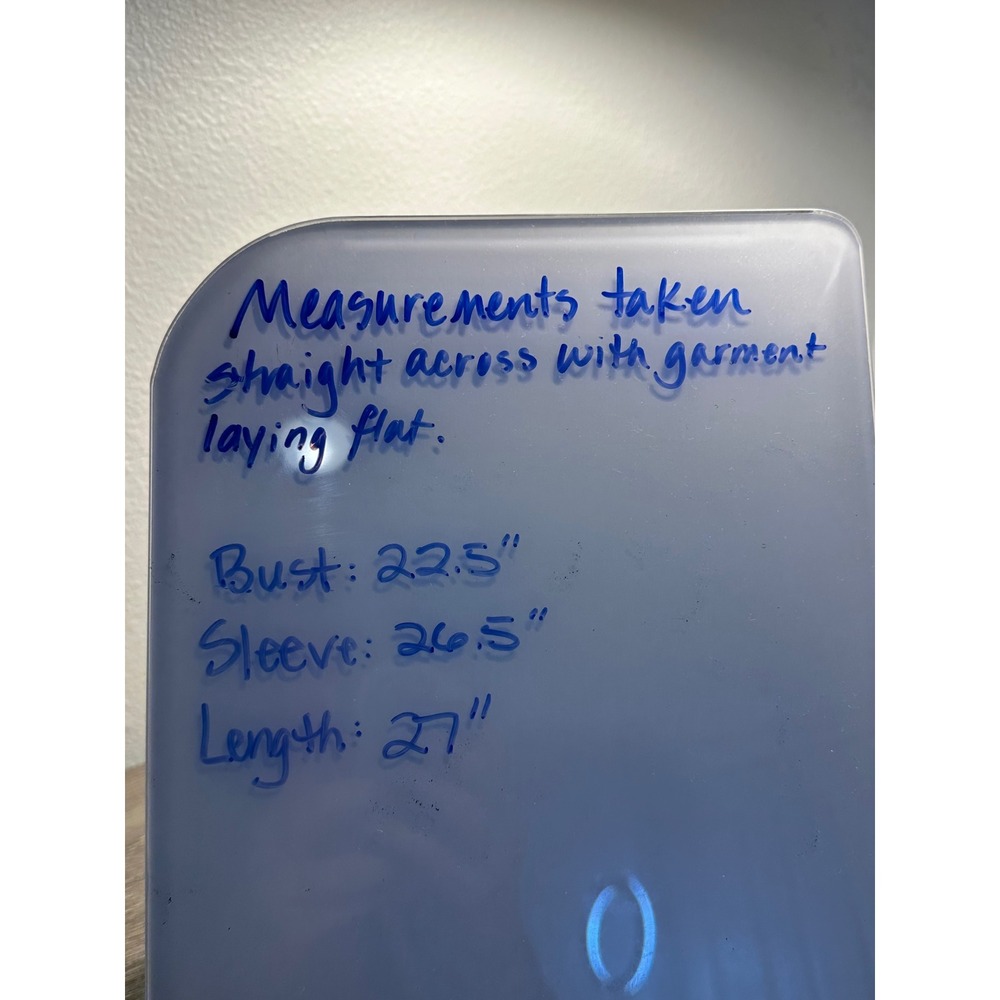 Measurements taken
straight across with garment
laying flat.
Bust: 22.5"
Sleeve: 26.5"
Length: 27"